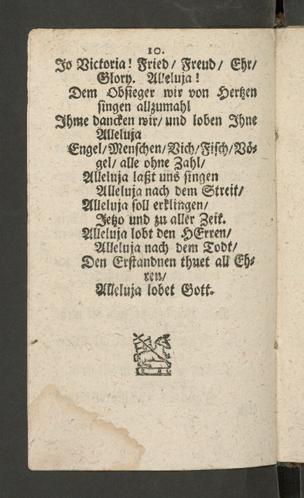 10.
Jo Victoria! Fried/ Freud/ Ehr/
Glory. Alleluja!
Dem Obsieger wir von Hertzen
singen allzumahl
Ihme dancken wir/ und loben Ihne
Alleluja
Engel/Menschen/Vich/Fisch/Vö-
gel/ alle ohne Zahl/
Alleluja laßt uns singen
Alleluja nach dem Streit/
Alleluja soll erklingen/
Jetzo und zu aller Zeit.
Alleluja lobt den HErren/
Alleluja nach dem Todt/
Den Erstandnen thuet all Eh-
ren/
Alleluja lobet Gott.